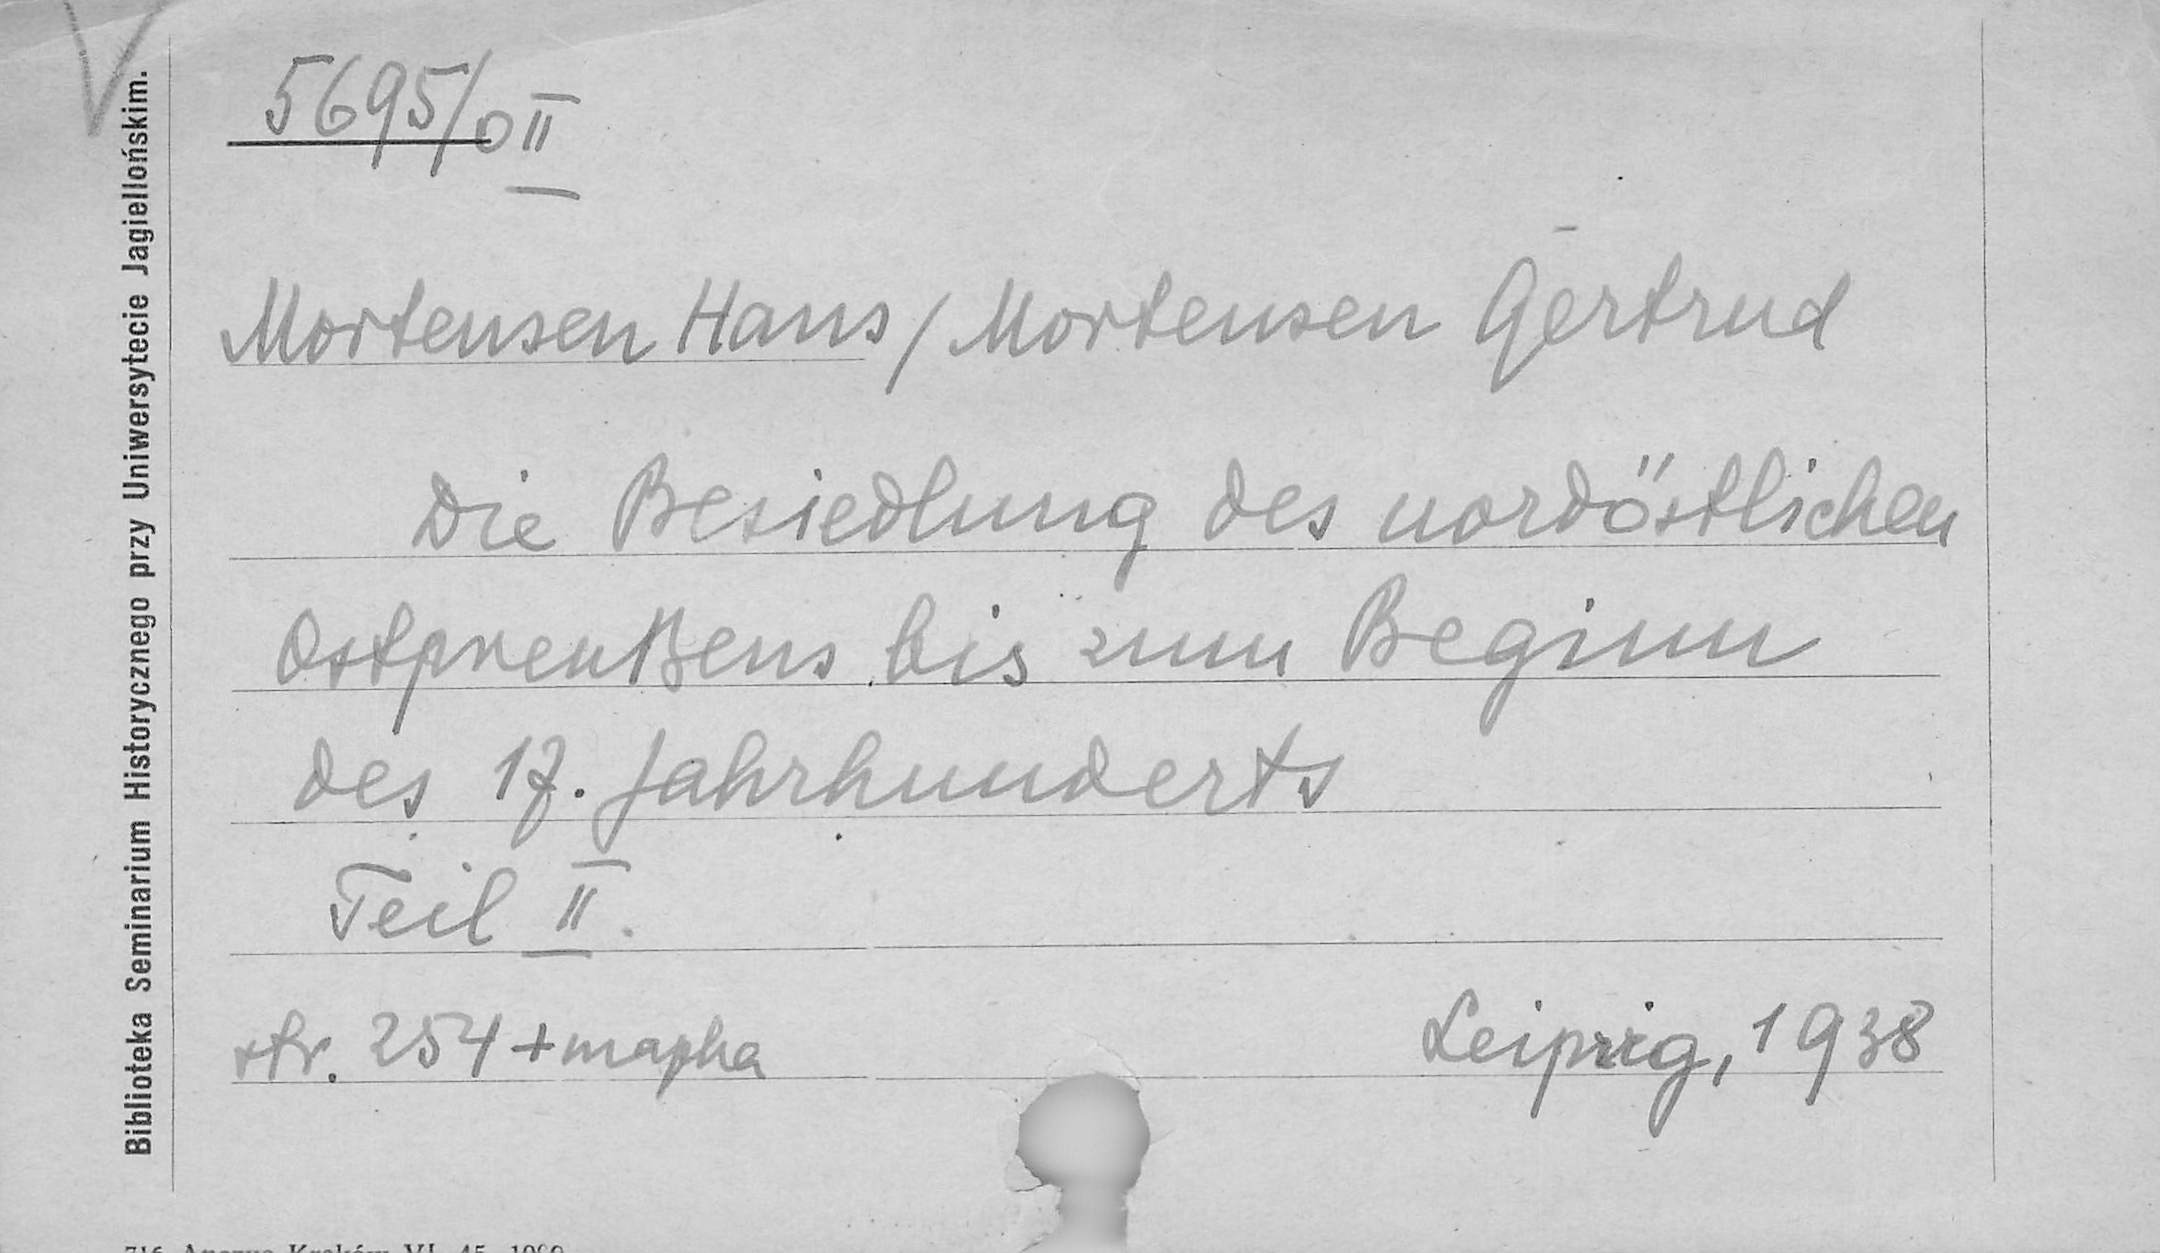 5695/0 II
Mortensen Hans / Mortensen Gertrud
Die Besiedlung des nordöstlichen
Ostpreußens bis zum Beginn
des 17. Jahrhunderts
Teil II.
str. 254 + mapka
Leipzig, 1938
Biblioteka Seminarium Historycznego przy Uniwersytecie Jagiellońskim.
Kraków VI. 45.